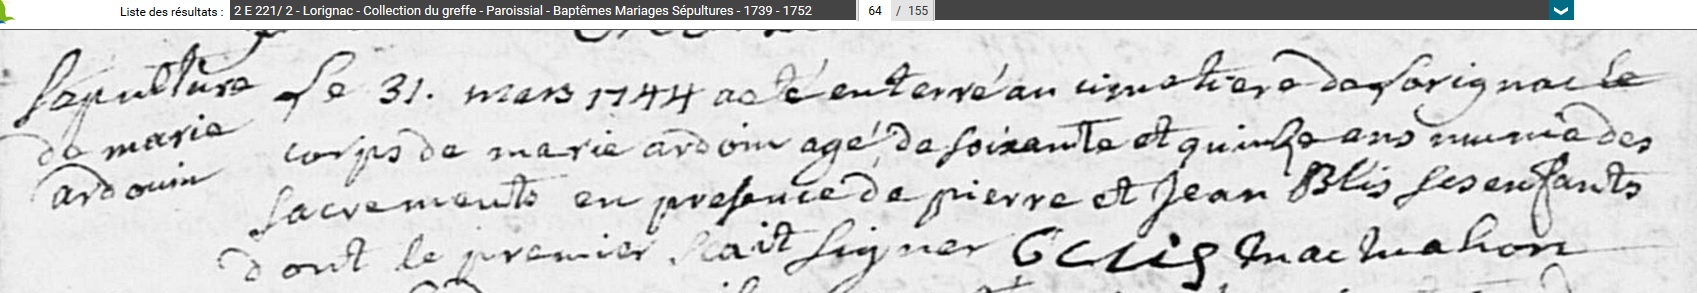 Liste des résultats : 2 E 221/ 2 - Lorignac - Collection du greffe - Paroissial - Baptêmes Mariages Sépultures - 1739 - 1752 64 / 155
Sepulture
de marie
ardouin
Le 31. mars 1744 a eté enterré au cimetiere de Lorignac le
corps de marie ardoin agé de soixante et quinze ans munie des
sacrements en presence de pierre et Jean Blis ses enfants
dont le premier scait signer Mac Mahon